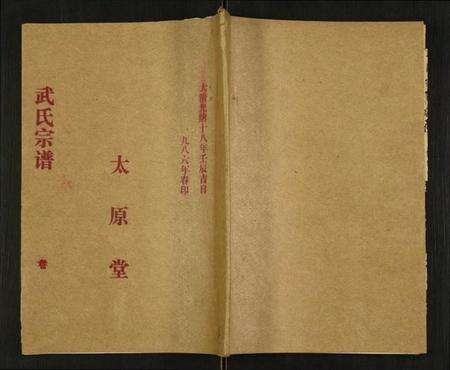 武氏宗谱
卷
太原堂
大清光绪十八年壬辰吉日
九八六年春印